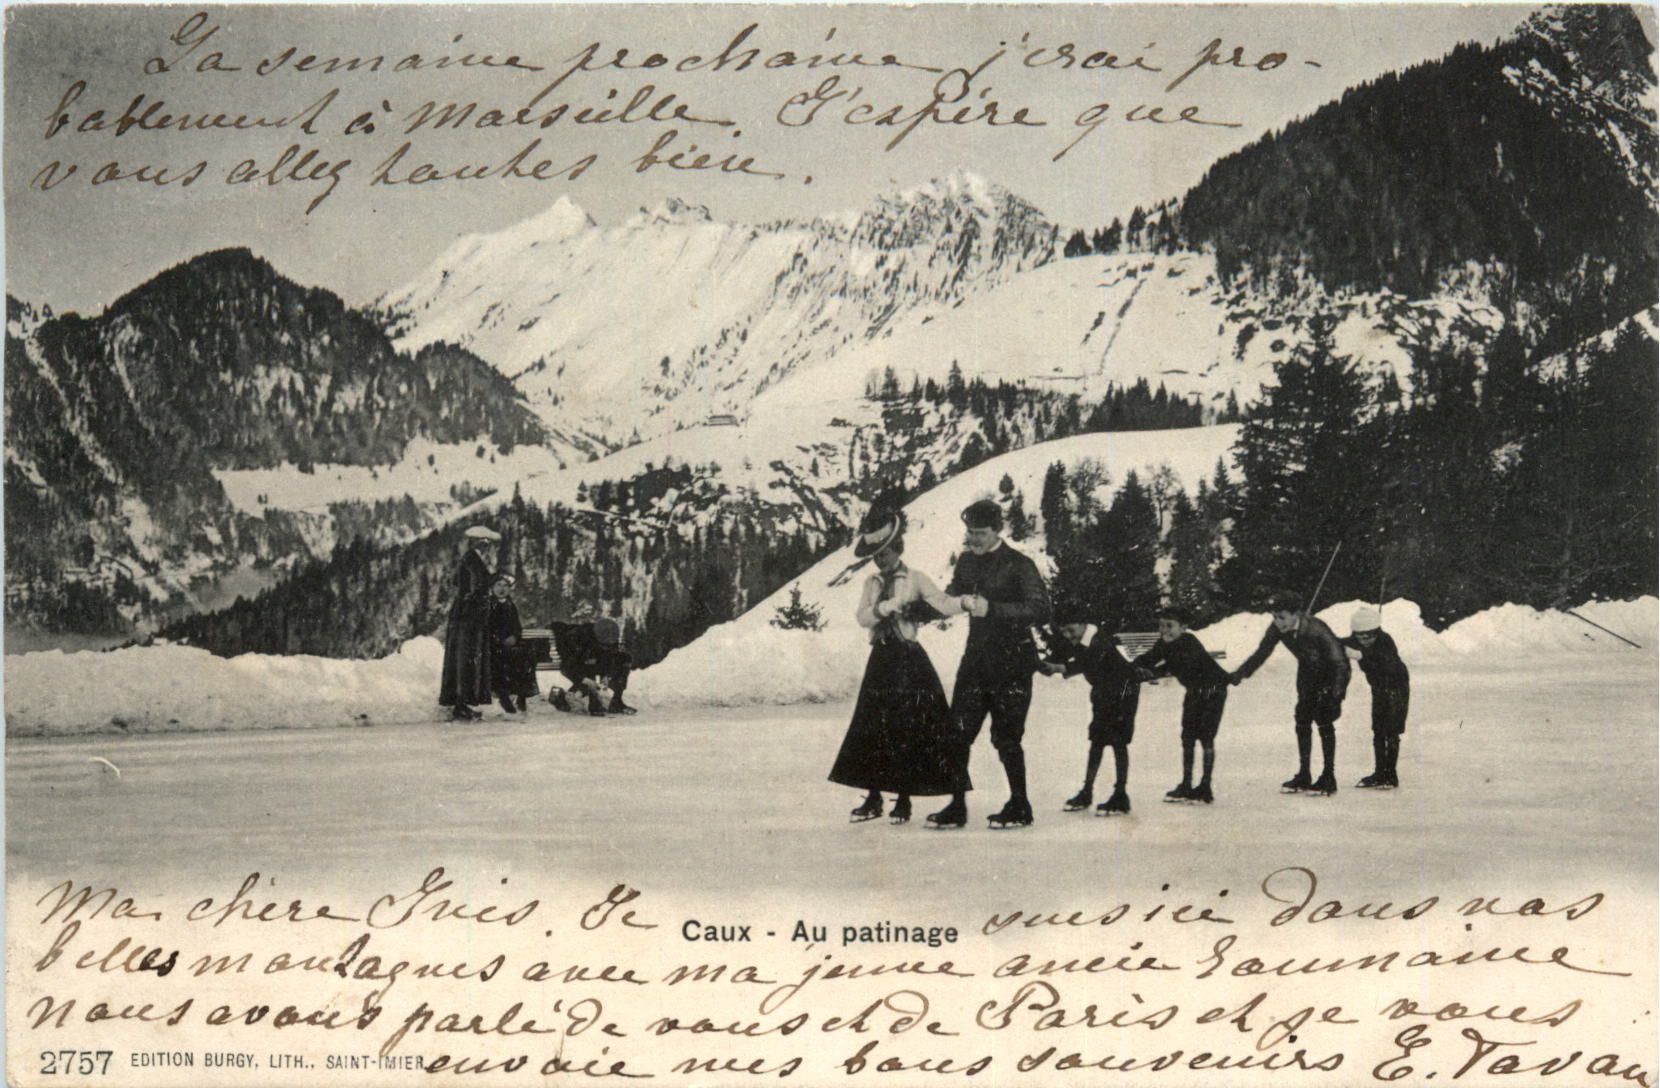 La semaine prochaine j'irai pro-
bablement à Marseille. J'espère que
vous allez toutes bien.
Ma chère Inès. Je suis ici dans nos
Caux - Au patinage
belles montagnes avec ma jeune amie Roumaine
nous avons parlé de vous et de Paris et je vous
envoie mes bons souvenirs E. Tavan
2757 EDITION BURGY, LITH., SAINT-IMIER